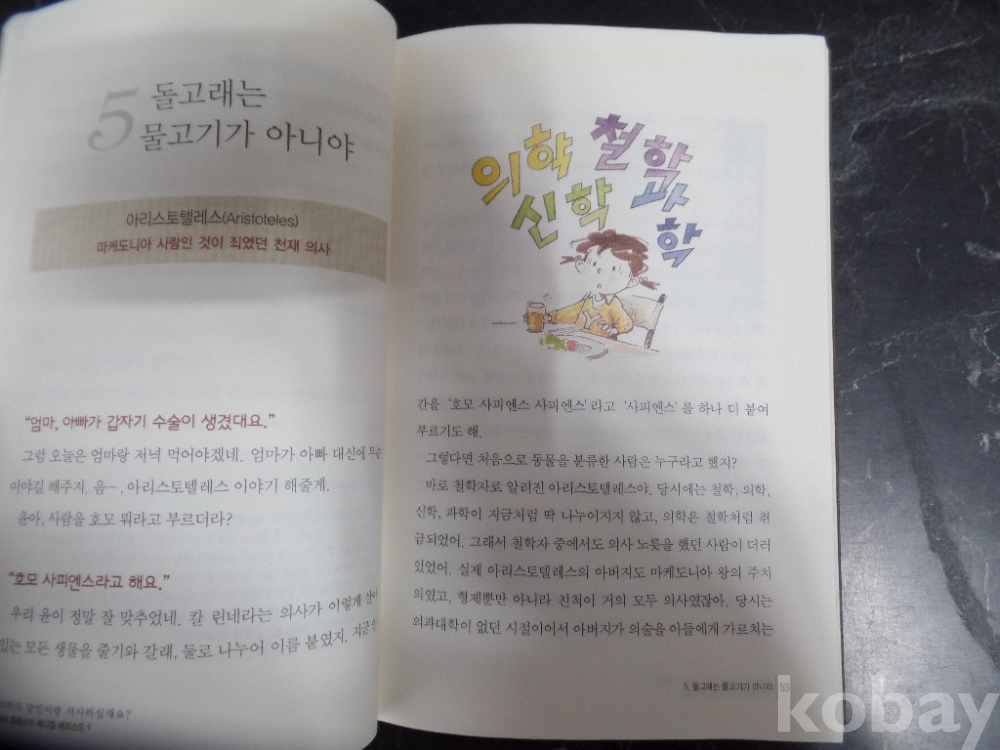 5 돌고래는
물고기가 아니야
아리스토텔레스(Aristoteles)
마케도니아 사람인 것이 죄였던 천재 의사
"엄마, 아빠가 갑자기 수술이 생겼대요."
그럼 오늘은 엄마랑 저녁 먹어야겠네. 엄마가 아빠 대신에 무슨
이야길 해주지. 음~, 아리스토텔레스 이야기 해줄게.
윤아, 사람을 호모 뭐라고 부르더라?
"호모 사피엔스라고 해요."
우리 윤이 정말 잘 맞추었네. 칼 린네라는 의사가 이렇게 살아
있는 모든 생물을 줄기와 갈래, 둘로 나누어 이름 붙였지. 지금 인
식사하실래요?
의학 철학
신학 과학
간을 '호모 사피엔스 사피엔스'라고 '사피엔스'를 하나 더 붙여
부르기도 해.
그렇다면 처음으로 동물을 분류한 사람은 누구라고 했지?
바로 철학자로 알려진 아리스토탤레스야. 당시에는 철학, 의학,
신학, 과학이 지금처럼 딱 나누어지지 않고, 의학은 철학처럼 취
급되었어. 그래서 철학자 중에서도 의사 노릇을 했던 사람이 더러
있었어. 실제 아리스토텔레스의 아버지도 마케도니아 왕의 주치
의였고, 형제뿐만 아니라 친척이 거의 모두 의사였잖아. 당시는
의과대학이 없던 시절이어서 아버지가 의술을 아들에게 가르치는
5. 돌고래는 물고기가 아니야 53
kobay